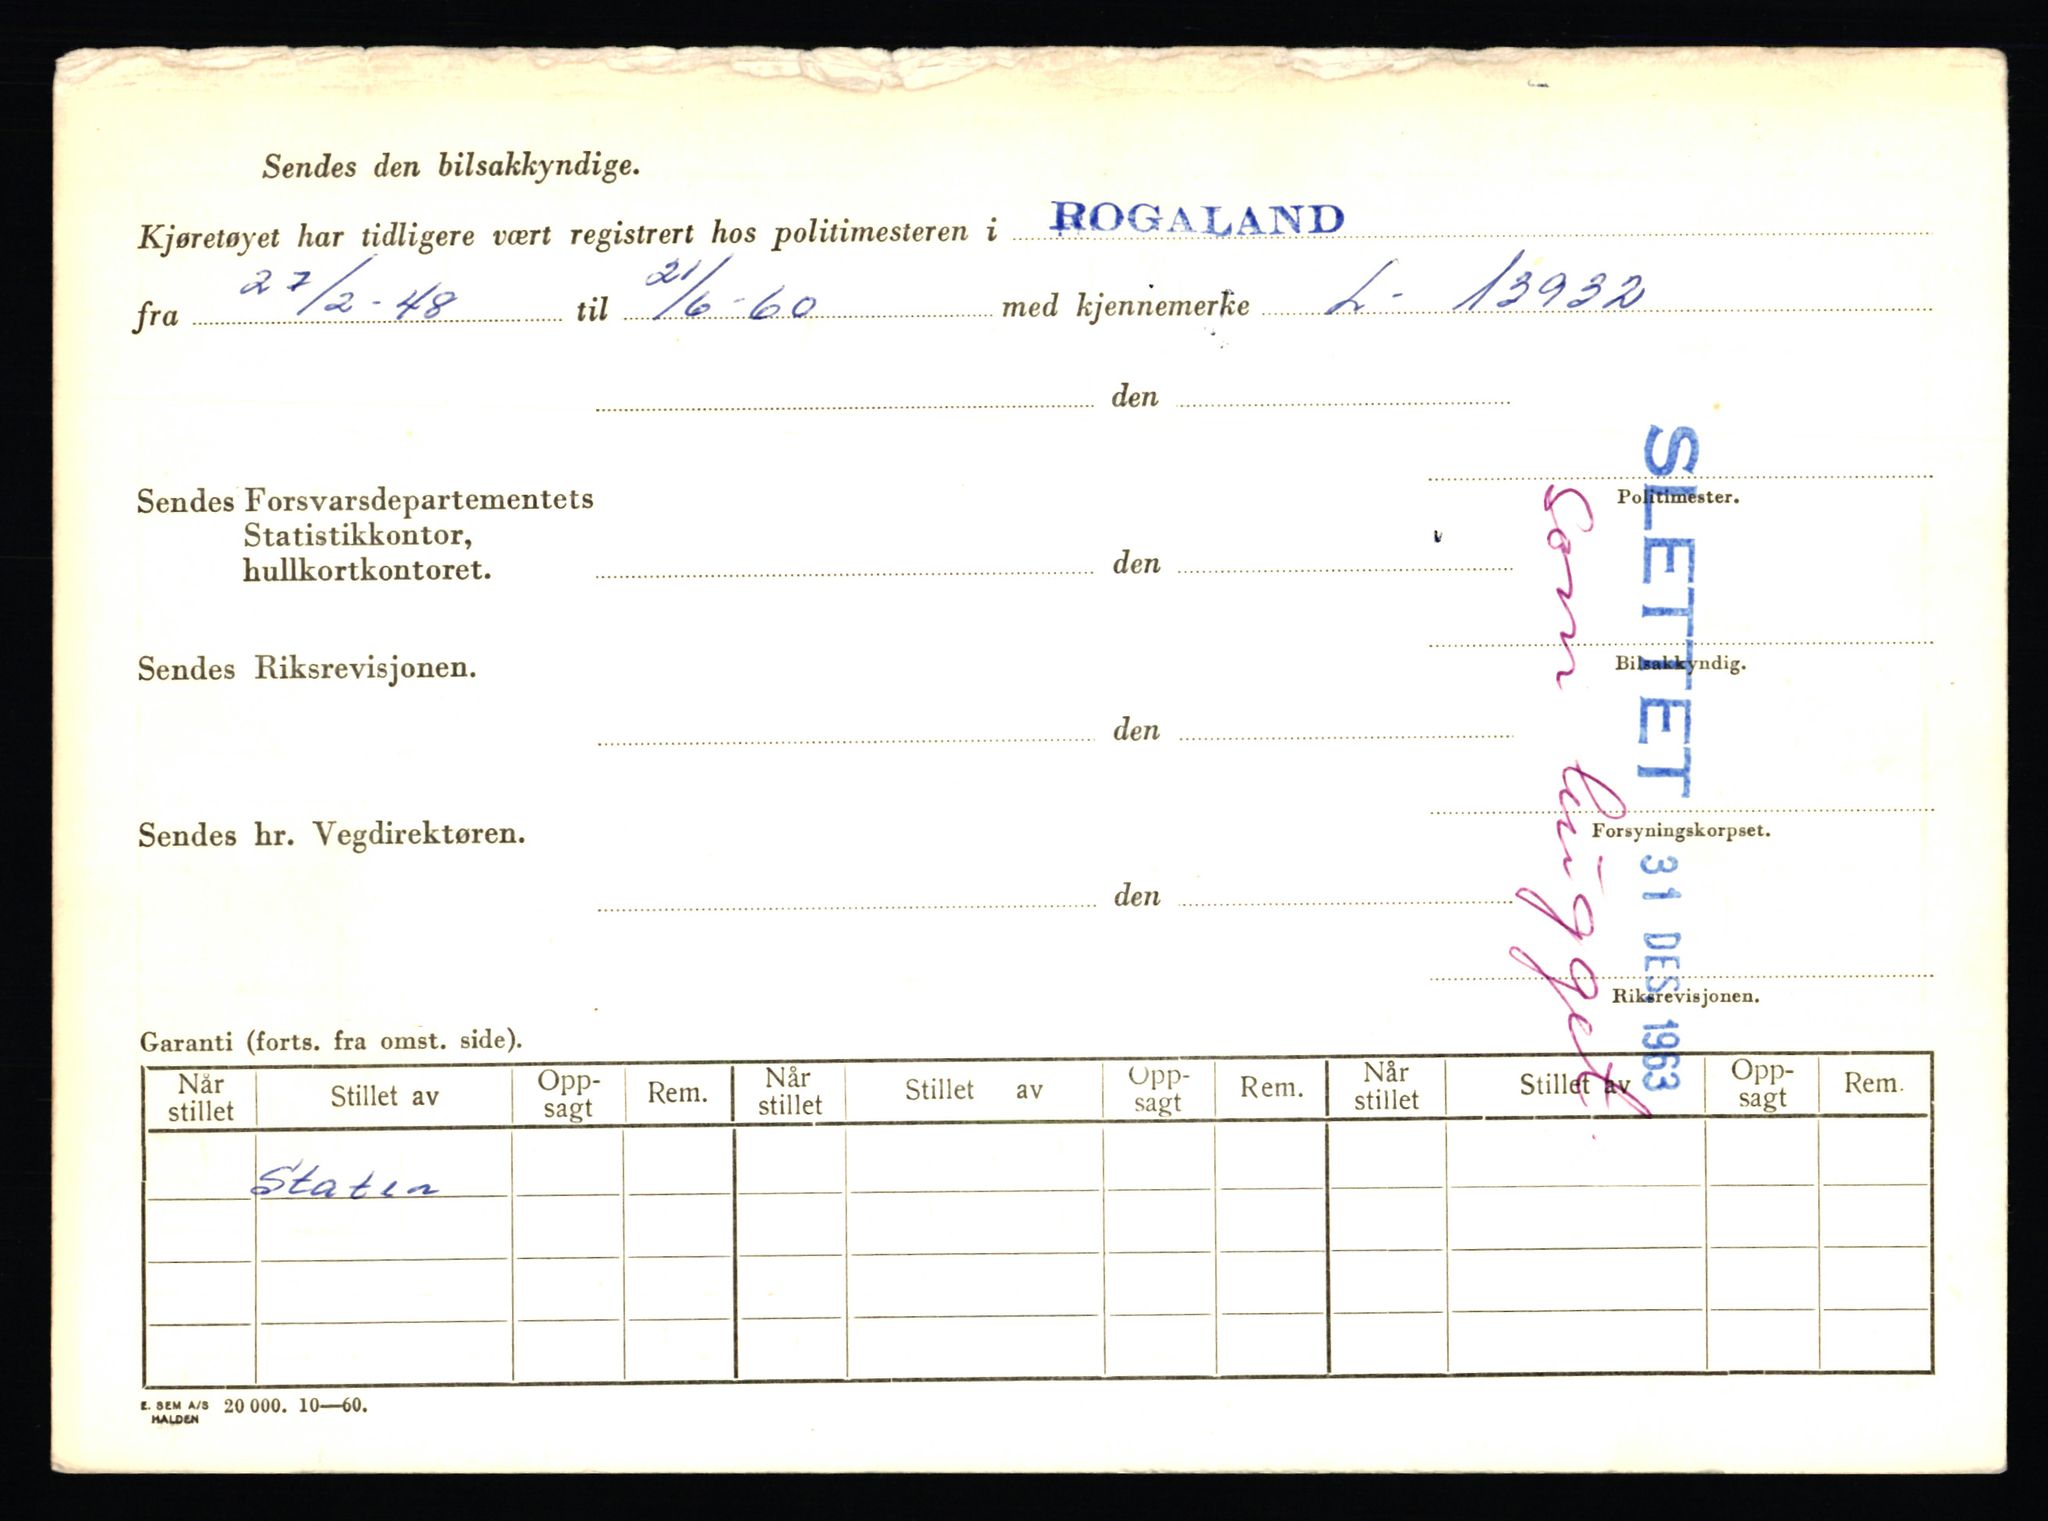 Sendes den bilsakkyndige.
Kjøretøyet har tidligere vært registrert hos politimesteren i ROGALAND
fra 27/2-48 til 21/6-60 med kjennemerke L- 13932
den
Politimester.
Sendes Forsvarsdepartementets
Statistikkontor,
hullkortkontoret.
den
Bilsakkyndig.
Sendes Riksrevisjonen.
den
Forsyningskorpset.
Sendes hr. Vegdirektøren.
den
Riksrevisjonen.
SLETTET 31 DES 1963
Som hugget.
Garanti (forts. fra omst. side).
Når stillet Stillet av Opp-sagt Rem. Når stillet Stillet av Opp-sagt Rem. Når stillet Stillet av Opp-sagt Rem.
Staten
E. SEM A/S HALDEN 20 000. 10—60.